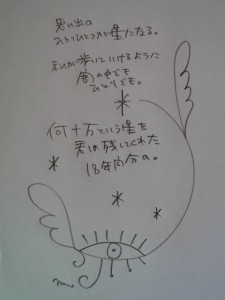 思い出の
ひとつひとつが星になる。
私が歩いていけるように
闇の中でも
ひとりでも。
何十万という星を
君は残してくれた
18年間分の。